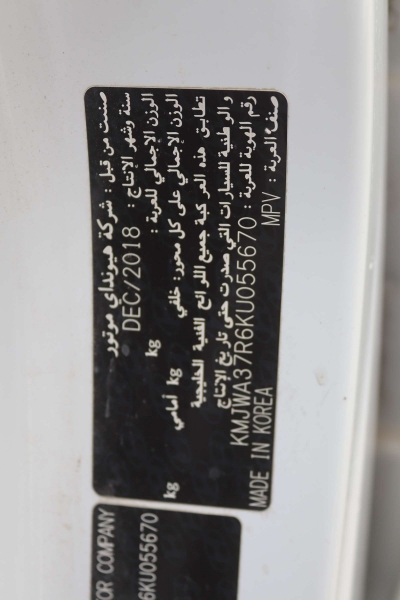 صنعت من قبل : شركة هيونداي موتور
سنة وشهر الإنتاج : DEC/2018
الوزن الإجمالي للعربة : kg
الوزن الإجمالي على كل محور: خلفي kg أمامي kg
تطابق هذه المركبة جميع اللوائح الفنية الخليجية
والوطنية للسيارات التي صدرت حتى تاريخ الإنتاج
رقم الهوية للعربة : KMJWA37R6KU055670
صنف العربة : MPV MADE IN KOREA
OR COMPANY
6KU055670